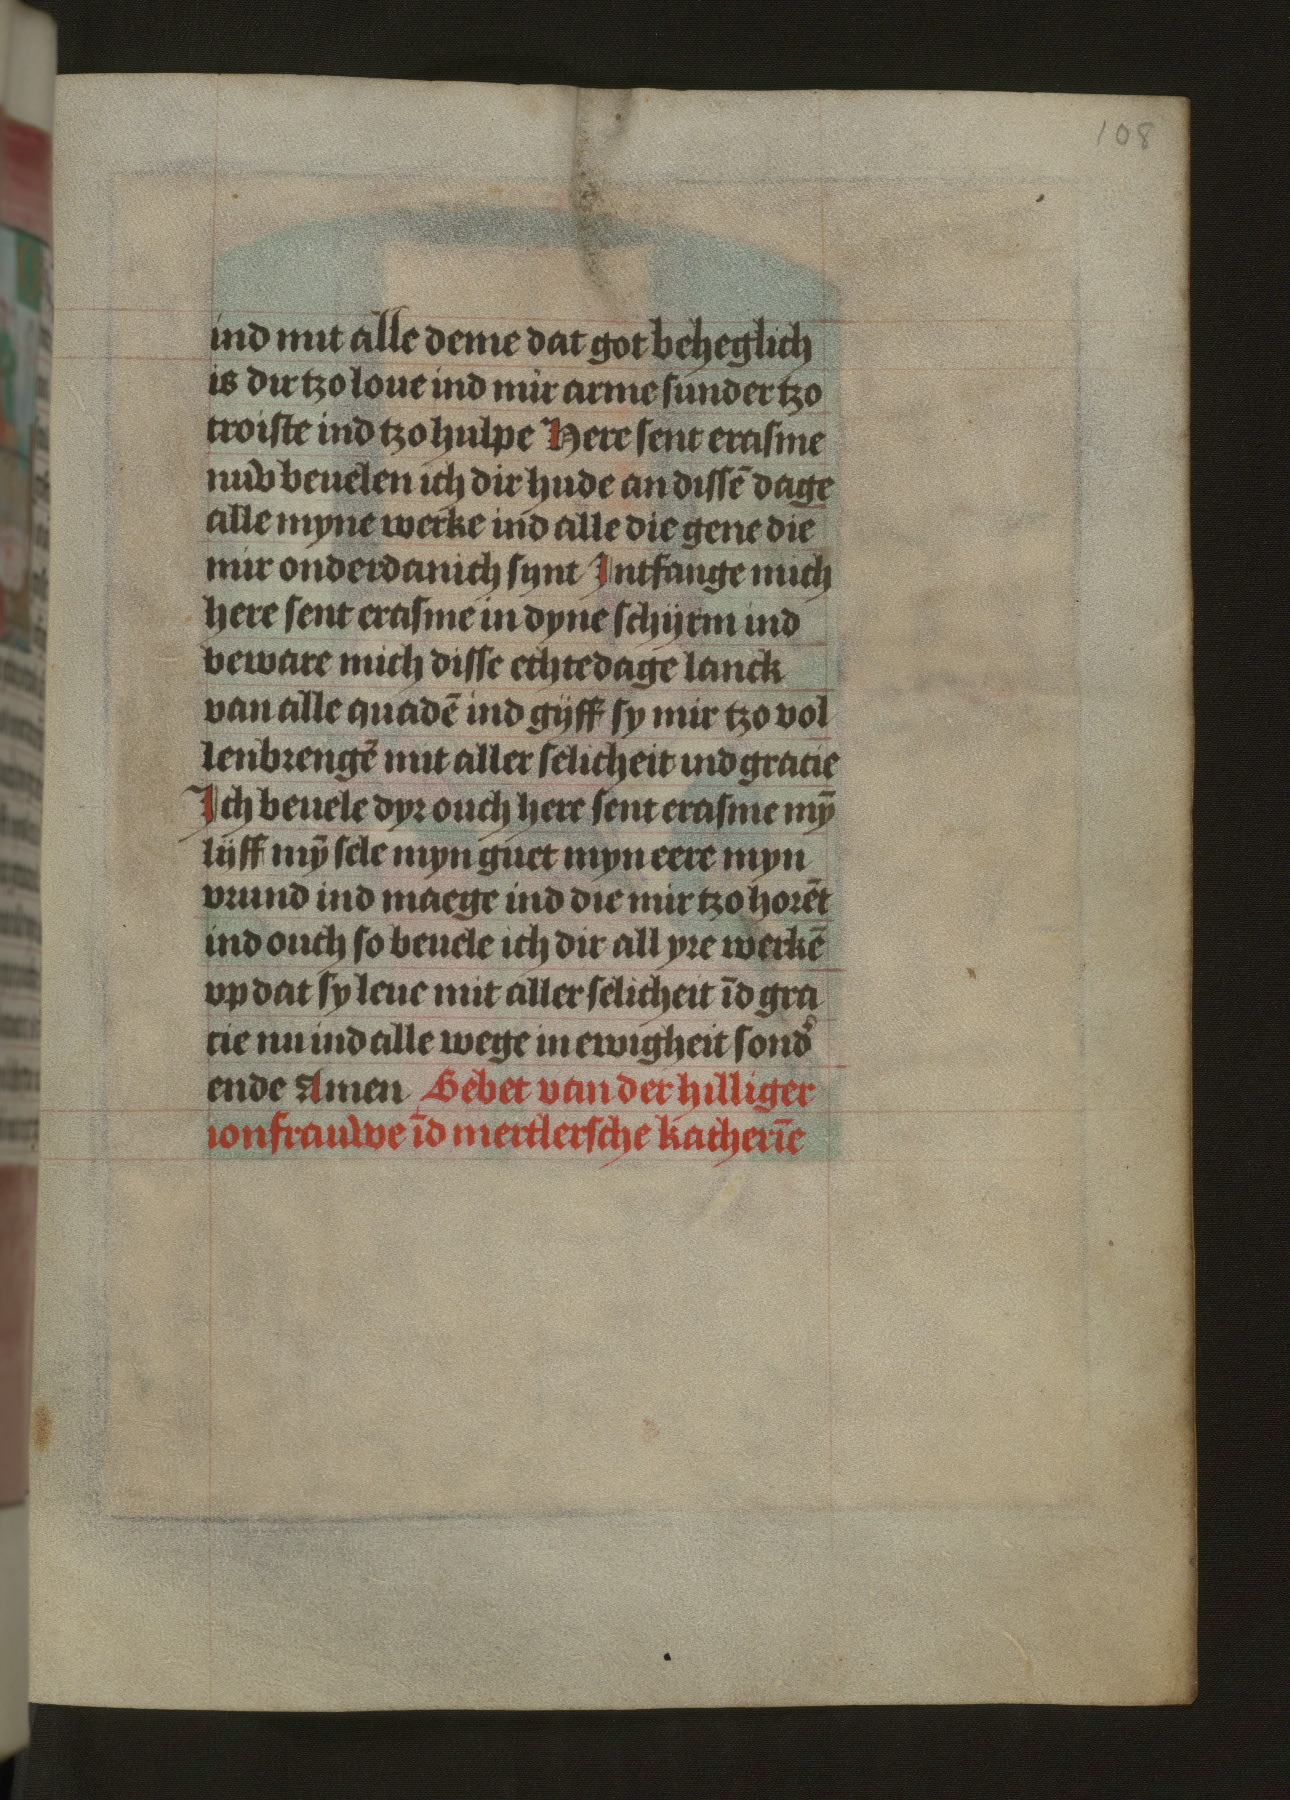 108
ind mit alle deme dat got beheglich
is dir tzo loue ind mir arme sunder tzo
troiste ind tzo hulpe Here sent erasme
nuw beuelen ich dir hude an dissē dage
alle myne werke ind alle die gene die
mir onderdanich synt Intfange mich
here sent erasme in dyne schijrm ind
beware mich disse echtedage lanck
van alle quadē ind gijff sy mir tzo vol
lenbrengē mit aller selicheit ind gracie
Ich beuele dyr ouch here sent erasme mȳ
lijff mȳ sele myn guet myn eere myn
vrund ind maege ind die mir tzo horēt
ind ouch so beuele ich dir all yre werkē
vp dat sy leue mit aller selicheit īd gra
cie nu ind alle wege in ewigheit sond'
ende Amen Gebet van der hilliger
ionfrauwe īd mertlersche katherīe